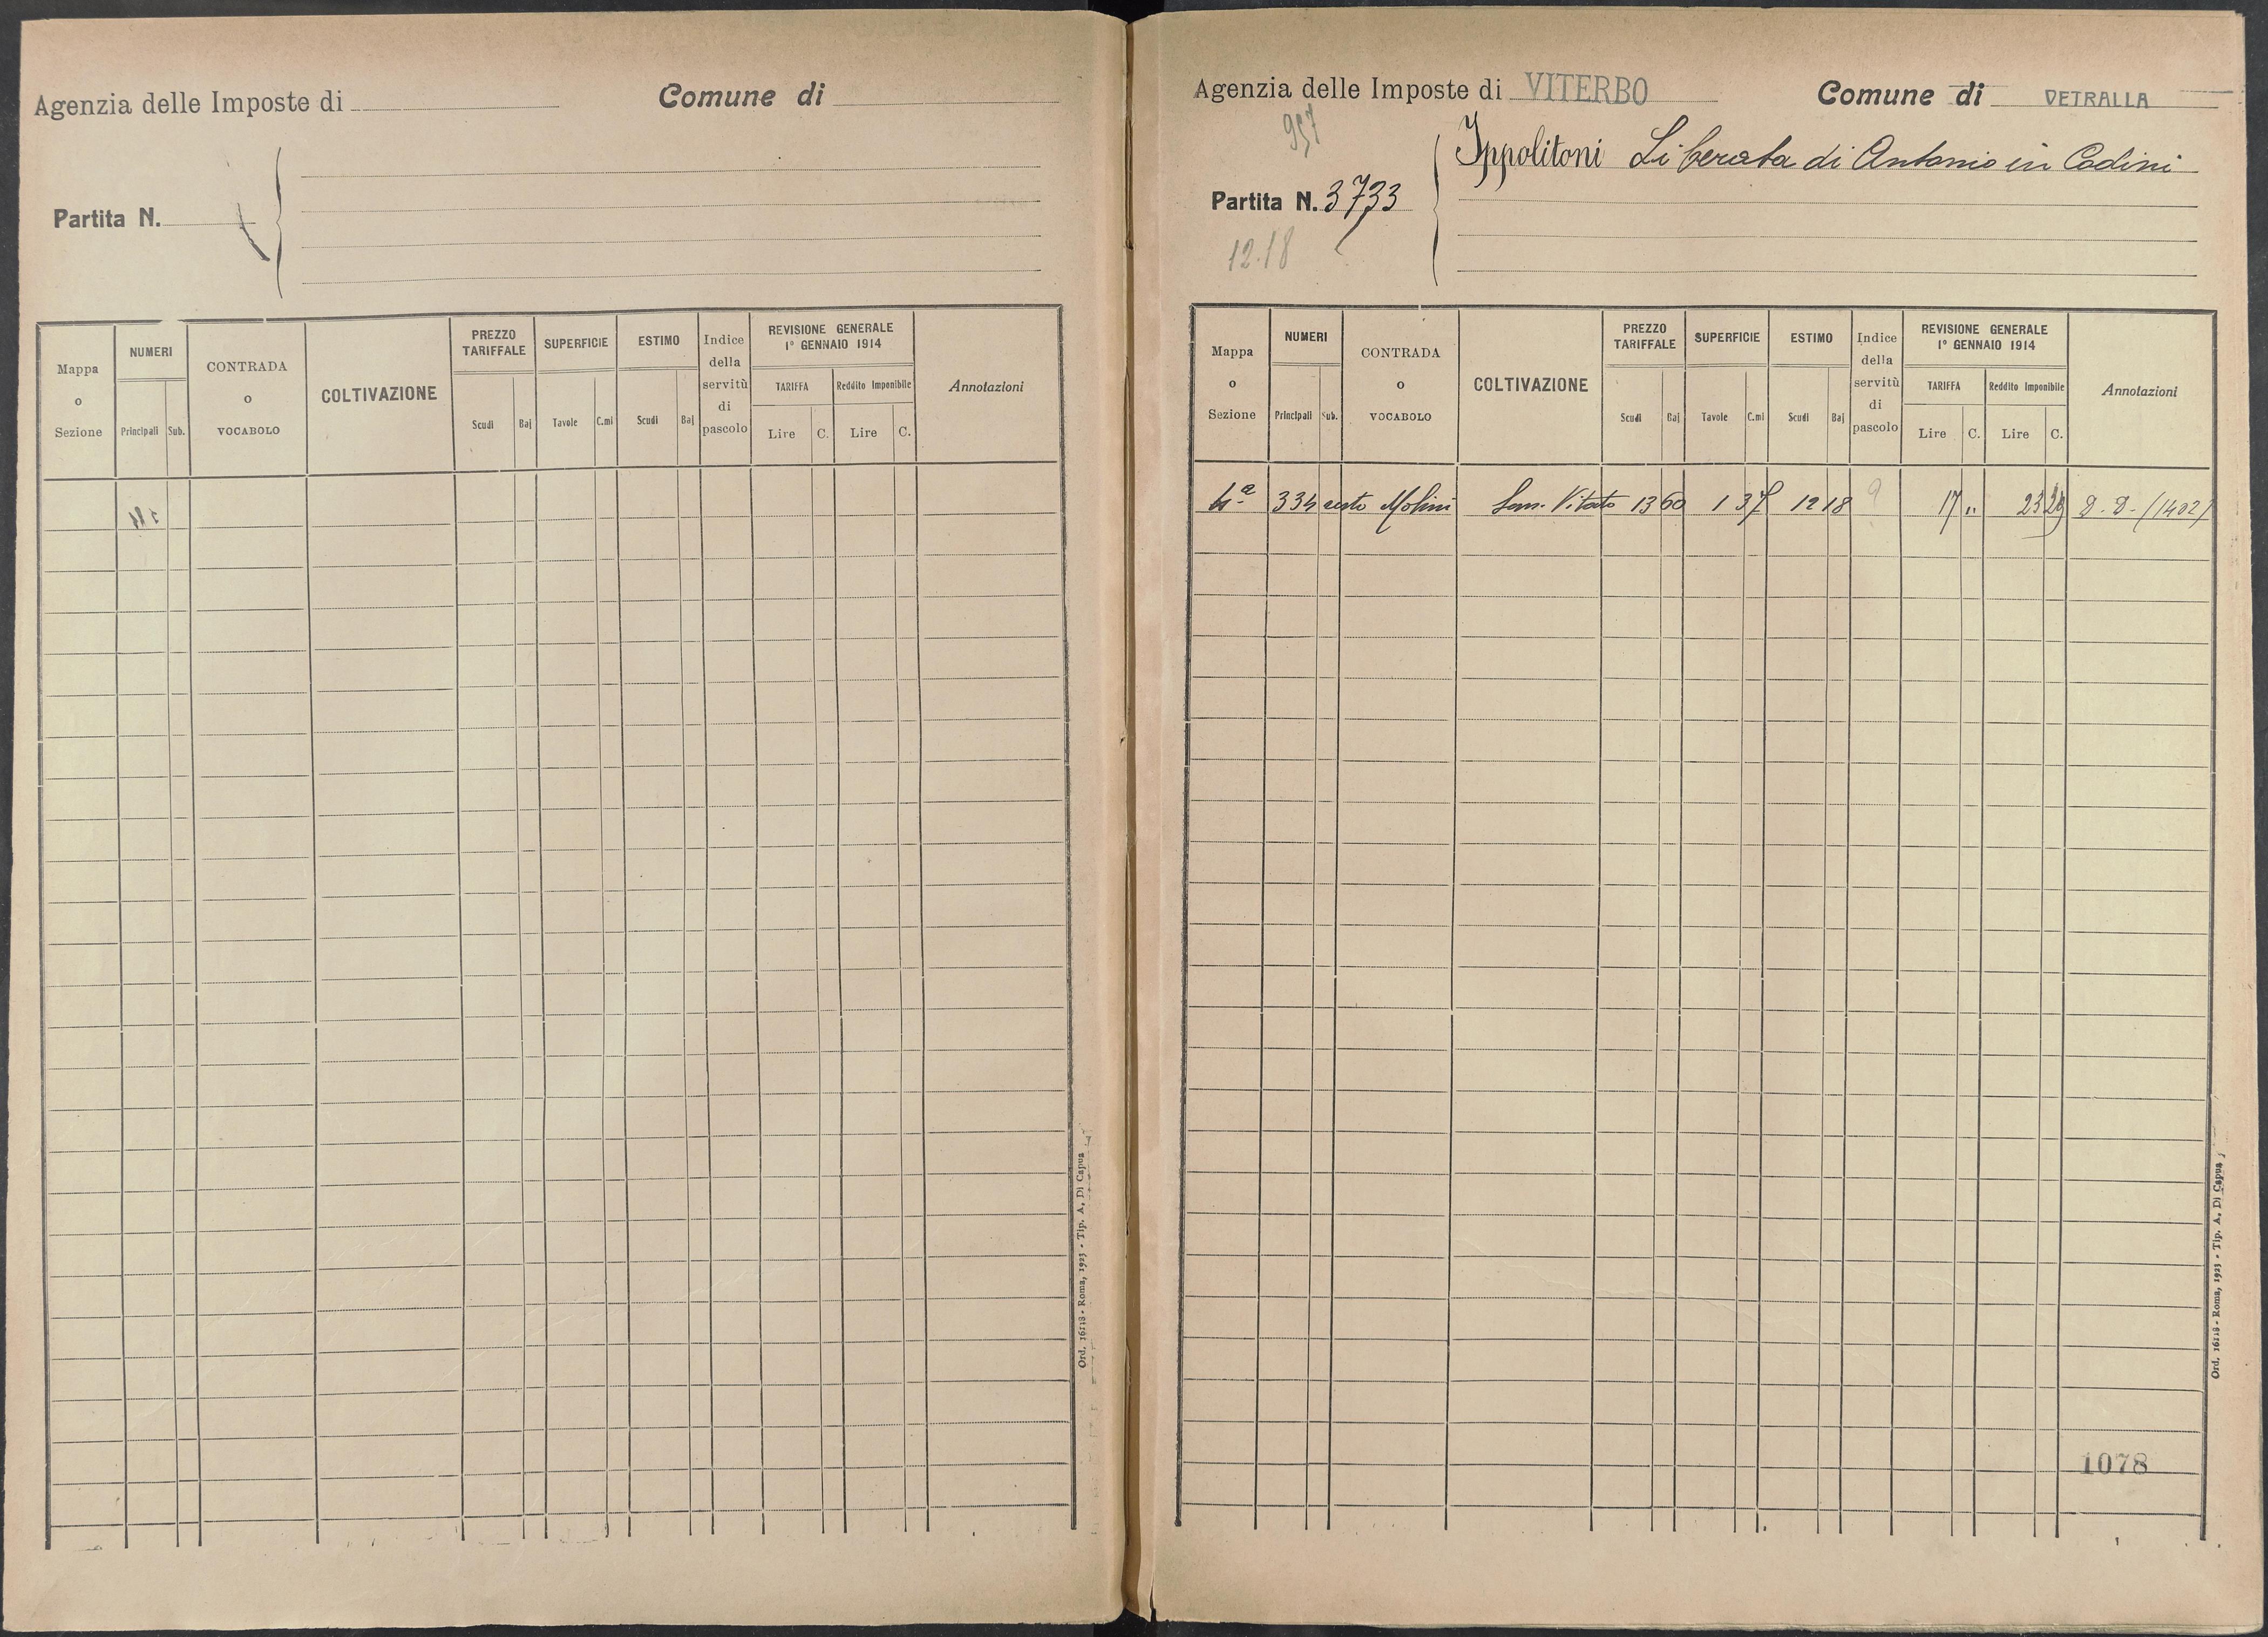 Agenzia delle Imposte di
Comune di
Partita N.
Mappa o Sezione
NUMERI
Principali Sub.
CONTRADA o VOCABOLO
COLTIVAZIONE
PREZZO TARIFFALE
Scudi Baj
SUPERFICIE
Tavole C.mi
ESTIMO
Scudi Baj
Indice della servitù di pascolo
REVISIONE GENERALE
1° GENNAIO 1914
TARIFFA
Lire C.
Reddito Imponibile
Lire C.
Annotazioni
Ord. 16118 - Roma, 1923 - Tip. A. Di Capua
Agenzia delle Imposte di VITERBO
Comune di VETRALLA
957
Ippolitoni Liberata di Antonio in Codini
Partita N. 3733
12.18
Mappa o Sezione
NUMERI
Principali Sub.
CONTRADA o VOCABOLO
COLTIVAZIONE
PREZZO TARIFFALE
Scudi Baj
SUPERFICIE
Tavole C.mi
ESTIMO
Scudi Baj
Indice della servitù di pascolo
REVISIONE GENERALE
1° GENNAIO 1914
TARIFFA
Lire C.
Reddito Imponibile
Lire C.
Annotazioni
4ª 334 Molini Sem. Vitato 13 60 1 37 12 18 9 17 " 23 29 D. D. (1402)
1078
Ord. 16118 - Roma, 1923 - Tip. A. Di Capua